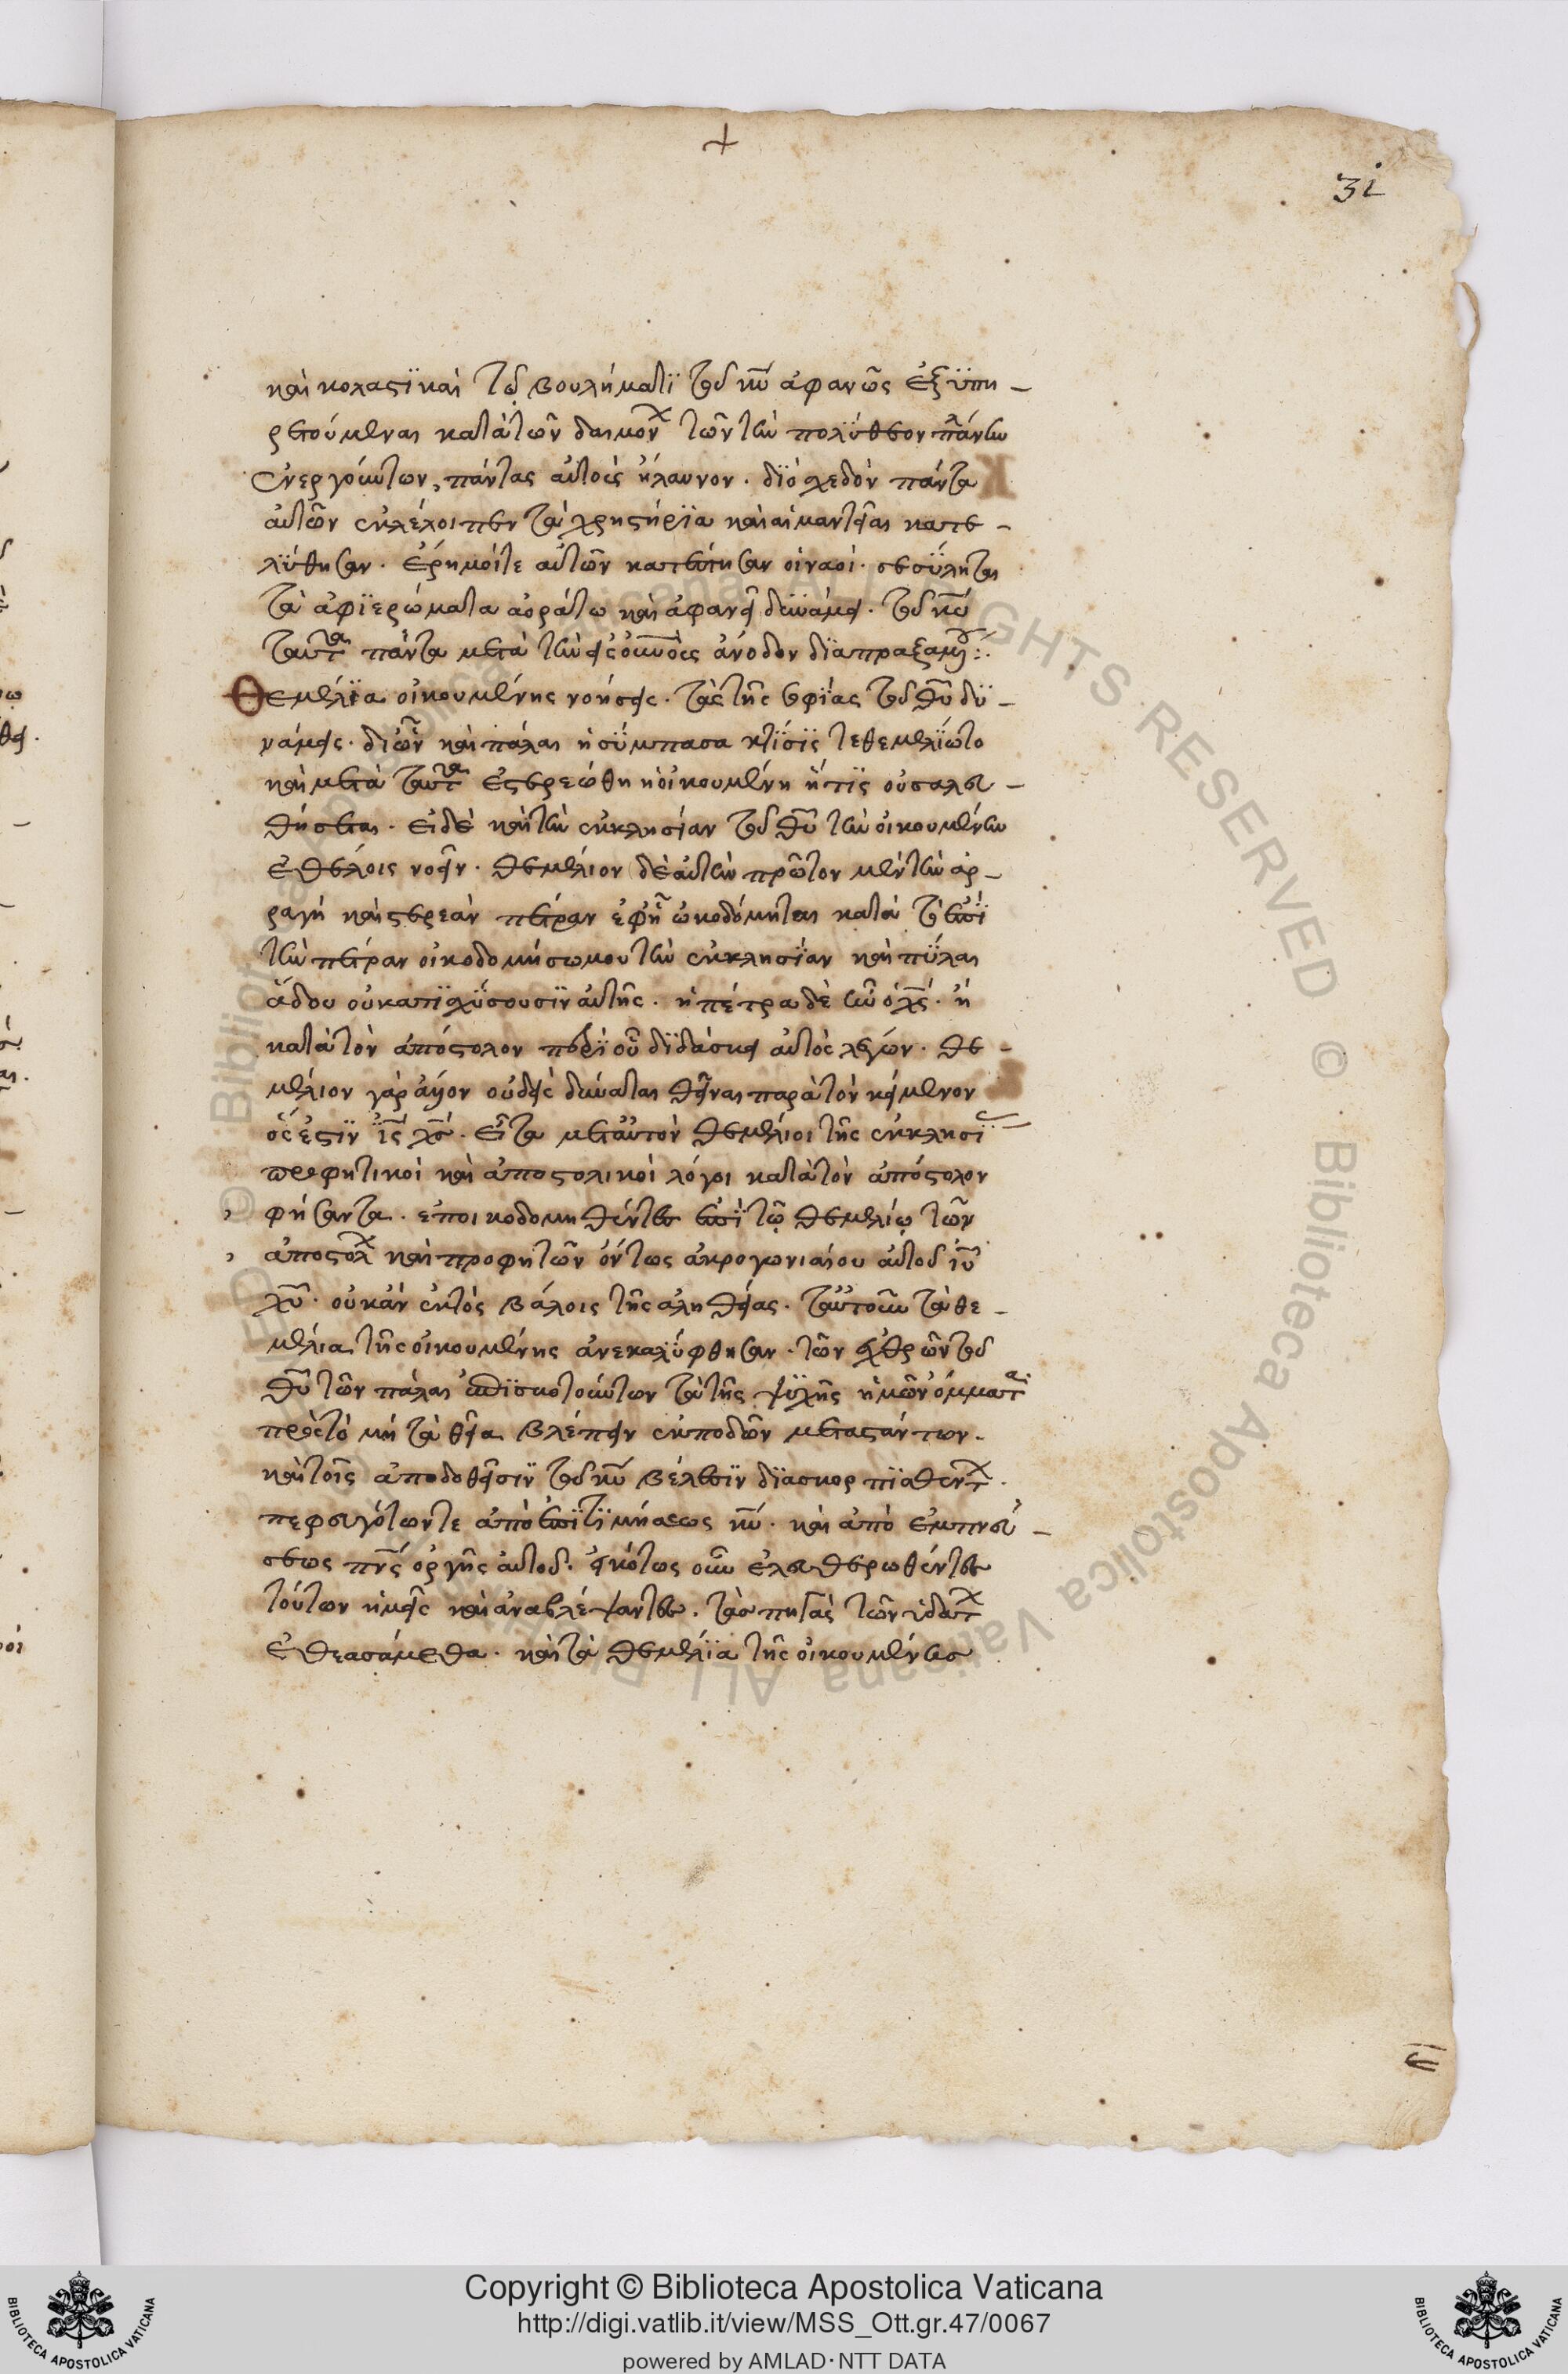 31
καὶ κολαστϊκαὶ τῷ βουλήματϊ τοῦ κῦ ἀφανῶς ἐξϋπη –
ρετούμεναι κατὰ τῶν δαιμόν τῶν τὴν πολϋθεον πλάνην
ἐνεργούντων, πάντας αὐτοὺς ἤλαυνον. δϊὸ σχεδὸν πάντα
αὐτῶν ἐκλέλοιπεν τὰ χρηστήρϊα καὶ αἱ μαντεῖαι κατε –
λΰθησαν. ἔρημοί τε αὐτῶν κατέστησαν οἱ ναοί. σεσΰληται
τὰ ἀφϊερώματα ἀοράτω καὶ ἀφανεῖ δυνάμει. τοῦ κῦ
ταῦτα πάντα μετὰ τὴν εἰς οὐνοὺς ἄνοδον δϊαπραξαμ :·
Θεμέλϊα οἰκουμένης νοήσεις. τὰς τῆς σοφϊας τοῦ θῦ δϋ –
νάμεις. δι ὧν καὶ πάλαι ἡ σΰμπασα κτϊσϊς τεθεμελϊωτο
καὶ μετὰ ταῦτα ἐστερεώθη ἡ οἰκουμένη ἥτϊς οὐ σαλευ –
θήσεται. εἰ δὲ καὶ τὴν ἐκκλησίαν τοῦ θῦ τὴν οἰκουμένην
ἐθέλοις νοεῖν. θεμέλιον δὲ αὐτὴν πρῶτον μὲν τὴν ἀρ –
ραγῆ καὶ στερεὰν πέτραν ἐφ ἣ ὠκοδόμηται κατὰ τὸ ἐπϊ
τὴν πέτραν οἰκοδομήσω μου τὴν ἐκκλησϊαν καὶ πΰλαι
ἅδου οὐ κατϊσχΰσουσϊν αὐτῆς. ἡ πέτρα δὲ ἦν ὁ χς. ἢ
κατὰ τὸν ἀπόστολον περϊ οὗ δϊδάσκει αὐτὸς λέγων. θε –
μέλιον γὰρ ἄλλον οὐδεὶς δύναται θεῖναι παρὰ τὸν κείμενον
ὅς ἐστϊν ις χς. εἶτα μετ αὐτὸν θεμέλιοι τῆς ἐκκλησϊ
προφητικοὶ καὶ ἀποστολικοὶ λόγοι κατὰ τὸν ἀπόστολον
φήσαντα. ἐποικοδομηθέντες ἐπϊ τῷ θεμελίῳ τῶν
ἀποστολ καὶ προφητῶν ὄντως ἀκρογωνιαίου αὐτοῦ ιῦ
χῦ. οὐκ ἂν ἐκτὸς βάλοις τῆς ἀληθείας. ταῦτ οὖν τὰ θε –
μέλια τῆς οἰκουμένης ἀνεκαλΰφθησαν. τῶν ἐχθρῶν τοῦ
θῦ τῶν πάλαι ἐπϊσκοτούντων τὰ τῆς ψϋχῆς ἡμῶν ὄμματ
πρὸς τὸ μὴ τὰ θεῖα βλέπειν ἐκποδῶν μεταστάντων.
καὶ τοῖς ἀποδοθεῖσϊν τοῦ κῦ βέλεσϊν δϊασκορπϊσθέντ.
πεφευγότων τε ἀπὸ ἐπϊτϊμήσεως κῦ. καὶ ἀπὸ ἐμπνεύ –
σεως πνς ὀργῆς αὐτοῦ. εἰκότως οὖν ἐλευθερωθέντες
τούτων ἡμεῖς καὶ ἀναβλέψαντες. τὰσ πηγὰς τῶν ὑδάτ
ἐθεασάμεθα. καὶ τὰ θεμέλϊα τῆς οἰκουμένησ
Copyright © Biblioteca Apostolica Vaticana
http://digi.vatlib.it/view/MSS_Ott.gr.47/0067
powered by AMLAD·NTT DATA